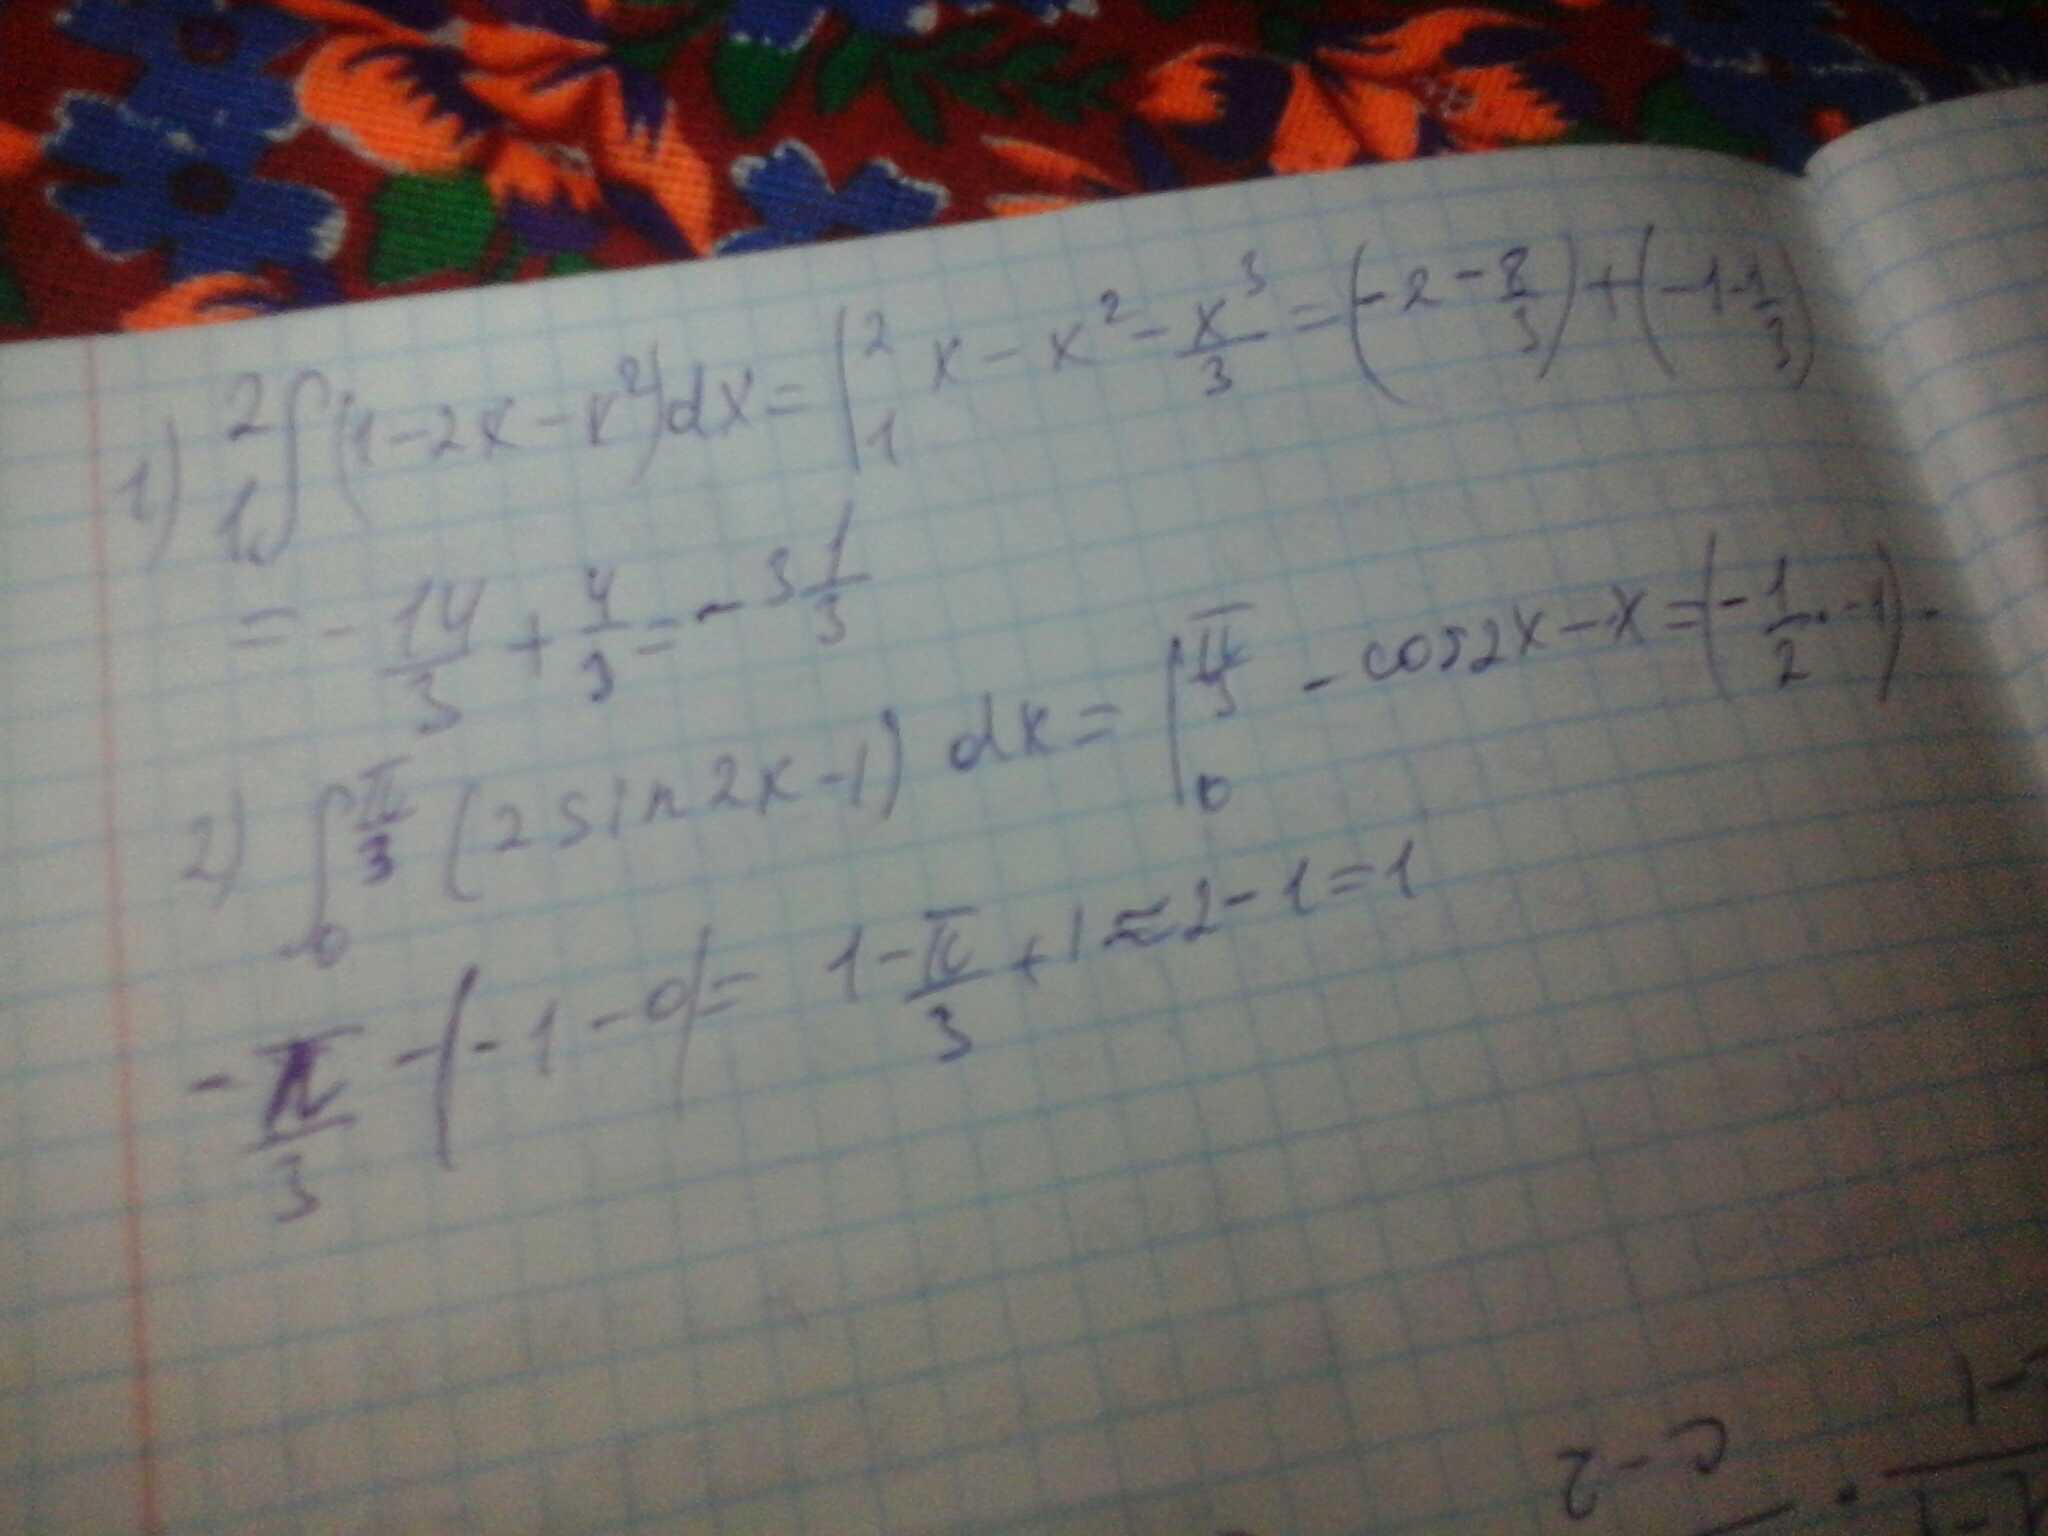 1) ₁∫² (1-2x-x²)dx = |₁² x - x² - x³/3 = (-2 - 8/3) + (-1 - 1/3)
= - 14/3 + 4/3 = - 3 1/3
2) ∫₀^(π/3) (2 sin 2x - 1) dx = |₀^(π/3) - cos 2x - x = (- 1/2 · -1) -
- π/3 - (-1 - 0) = 1 - π/3 + 1 ≈ 2 - 1 = 1